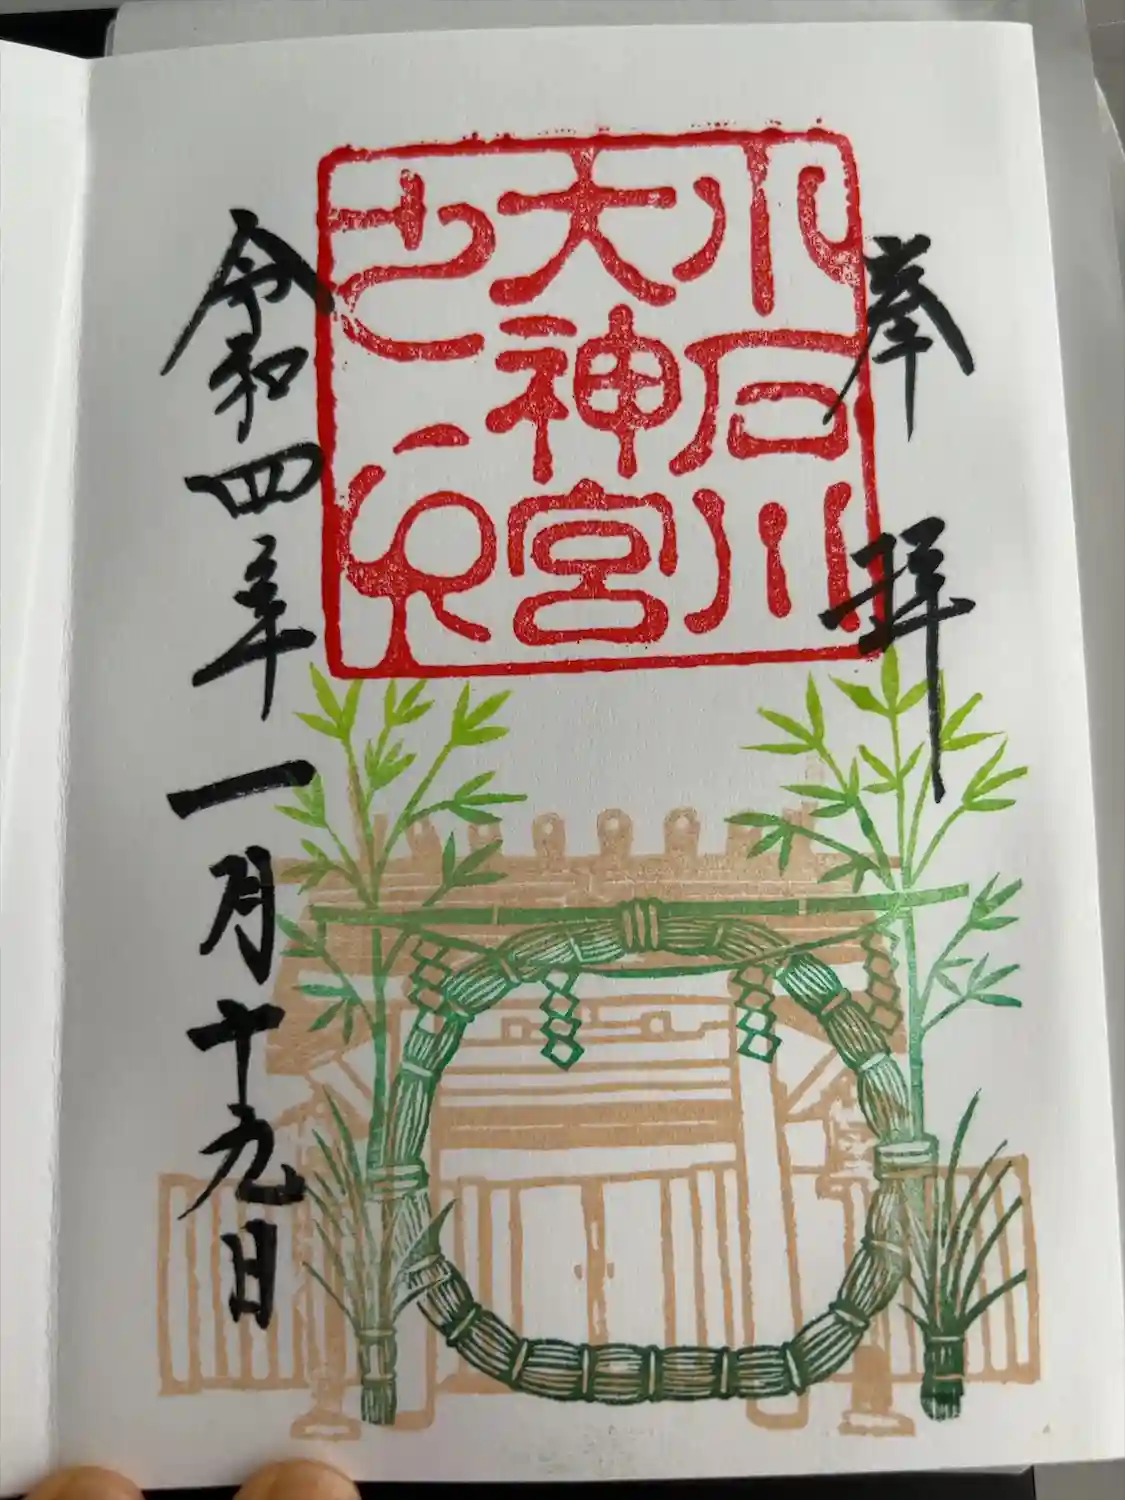 奉拝
小石川
大神宮
令和四年一月十九日